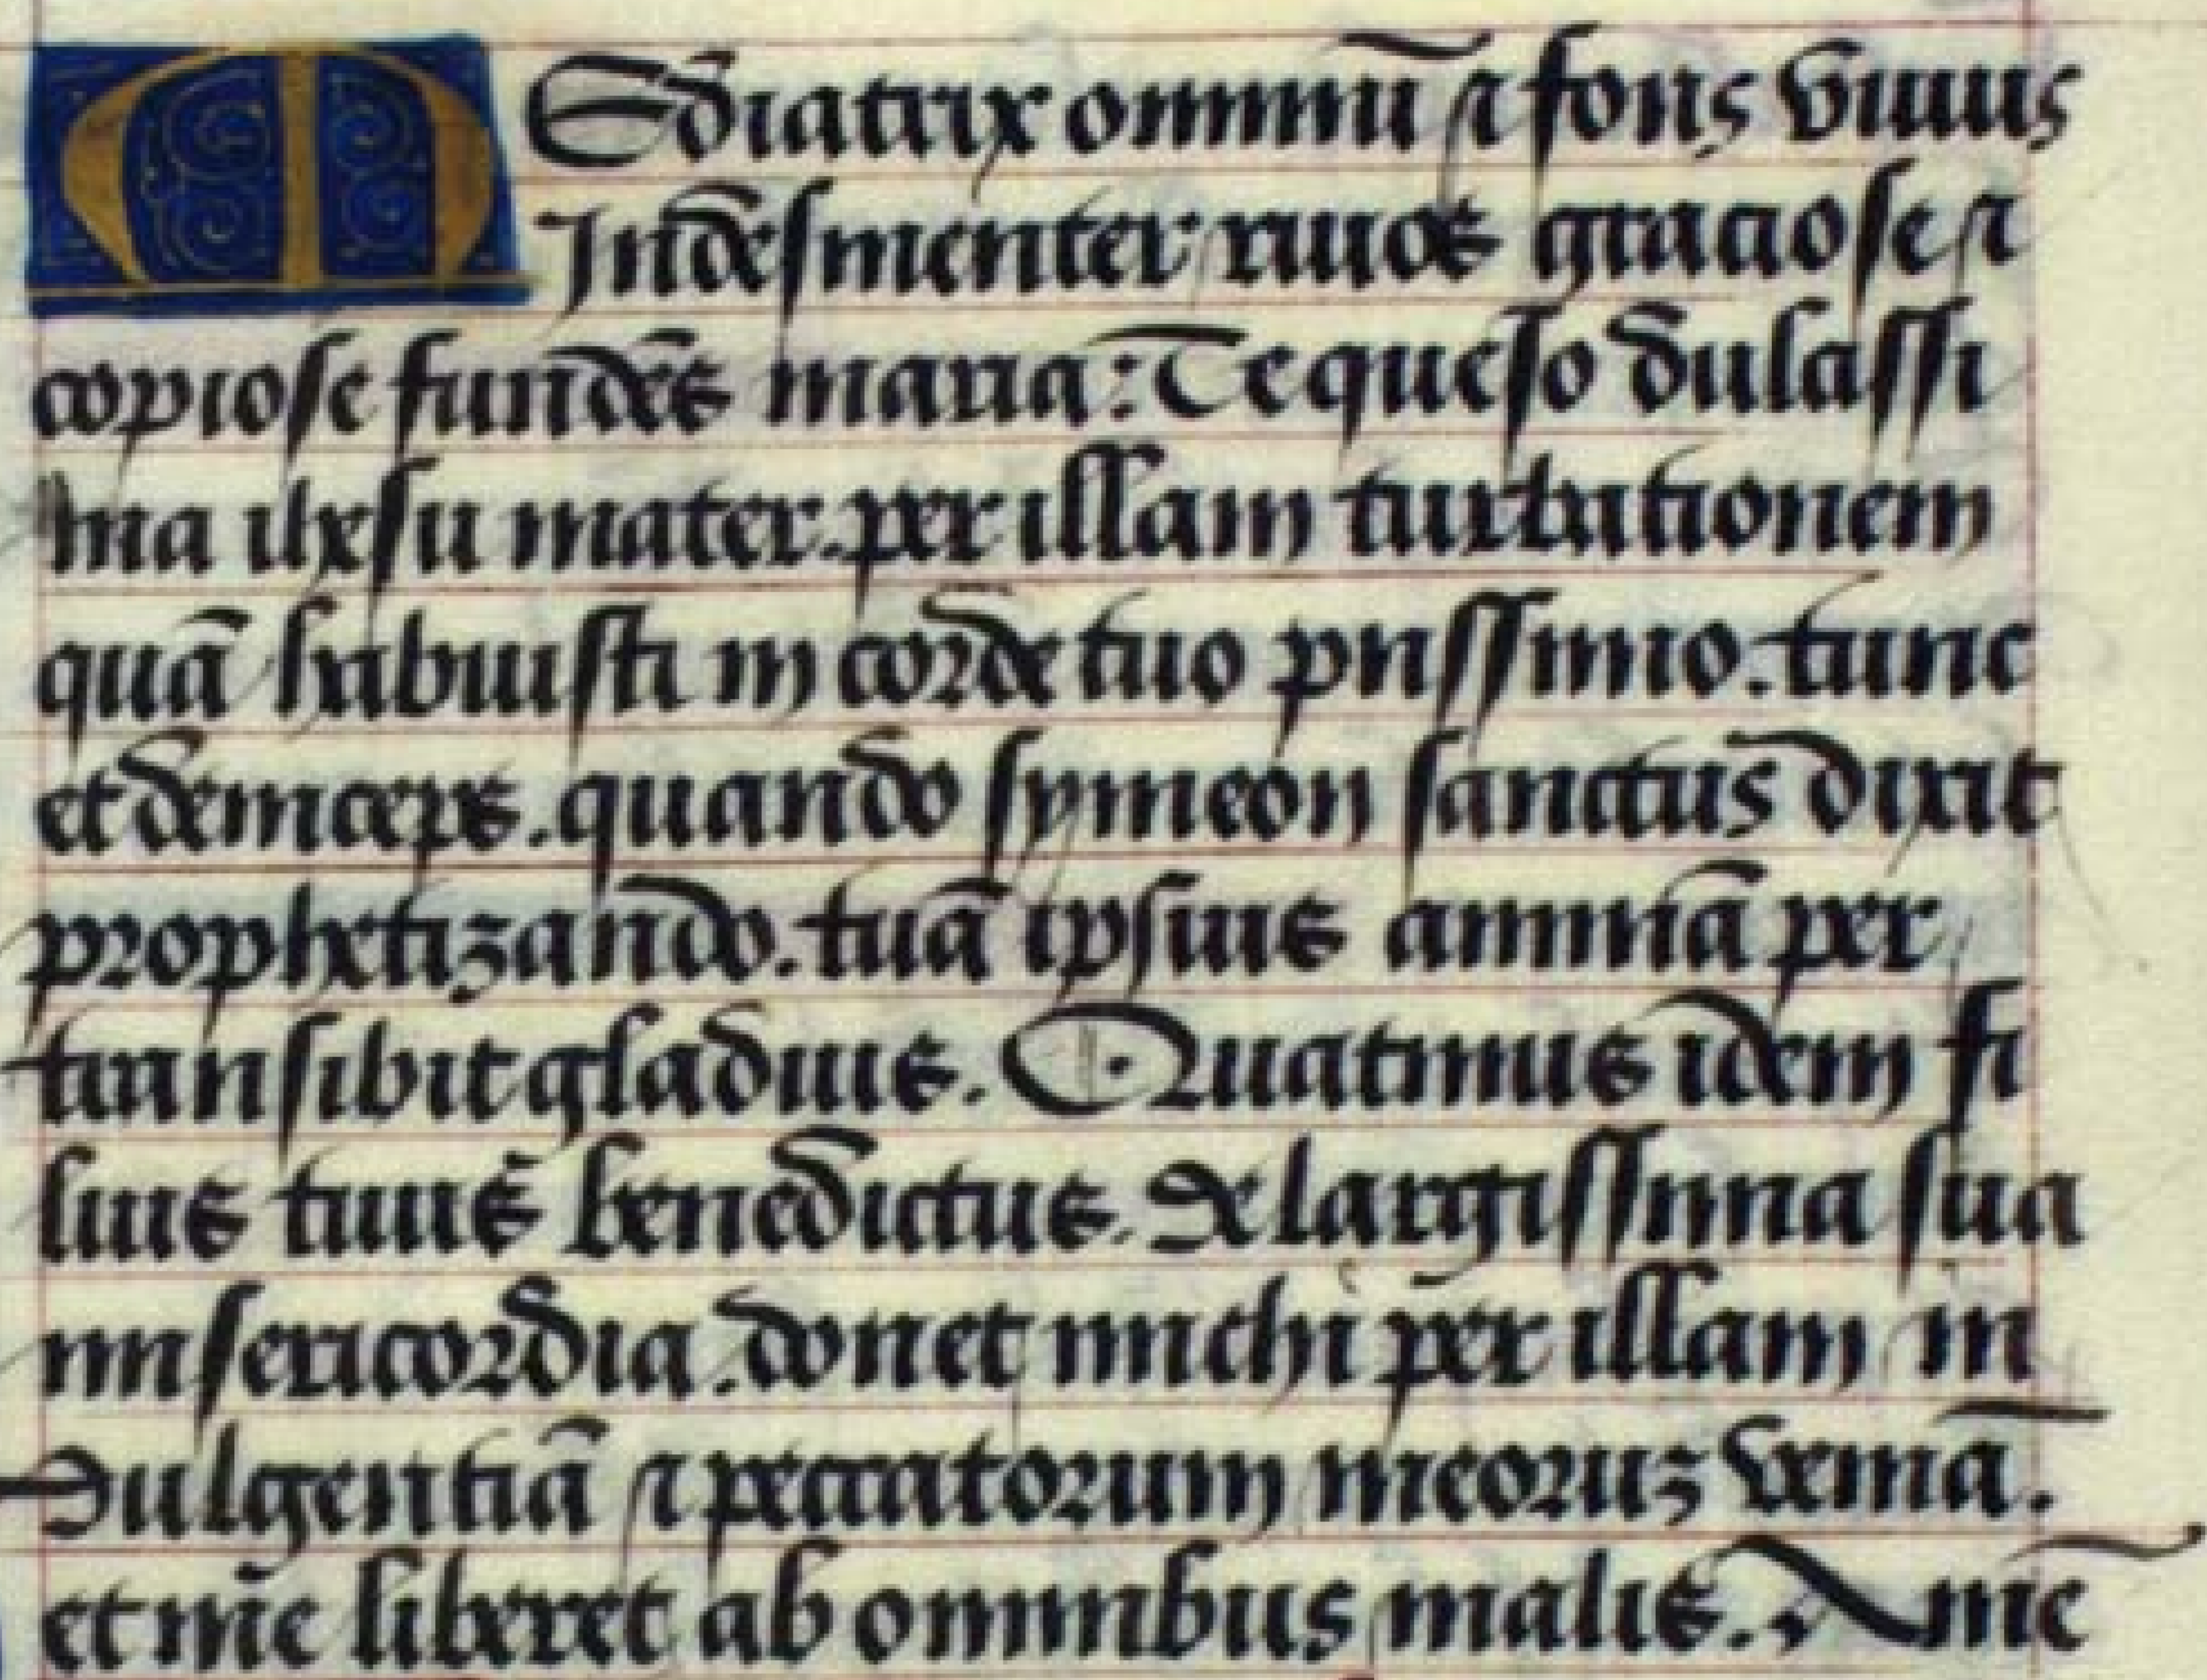 MEdiatrix omniū ⁊ fons viuus
Indesinenter riuos graciose ⁊
copiose fundēs maria: Te queso dulcissi
ma ihesu mater. per illam turbationem
quā habuisti in corde tuo piissimo. tunc
et deinceps. quando symeon sanctus dixit
prophetizando. tuā ipsius animā per
transibit gladius. Quatinus idem fi
lius tuus benedictus. De largissima sua
misericordia. donet michi per illam in
dulgentiā ⁊ peccatorum meoruꝫ veniā.
et me liberet ab omnibus malis. Amē